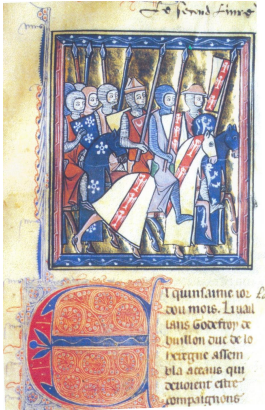 Le second liure
Et quinsaime ior
dou mois. Li uail
lans Godefroy de
buillon duc de lo
hereigne assem
bla aceaus qui
deuoient estre
compaignons